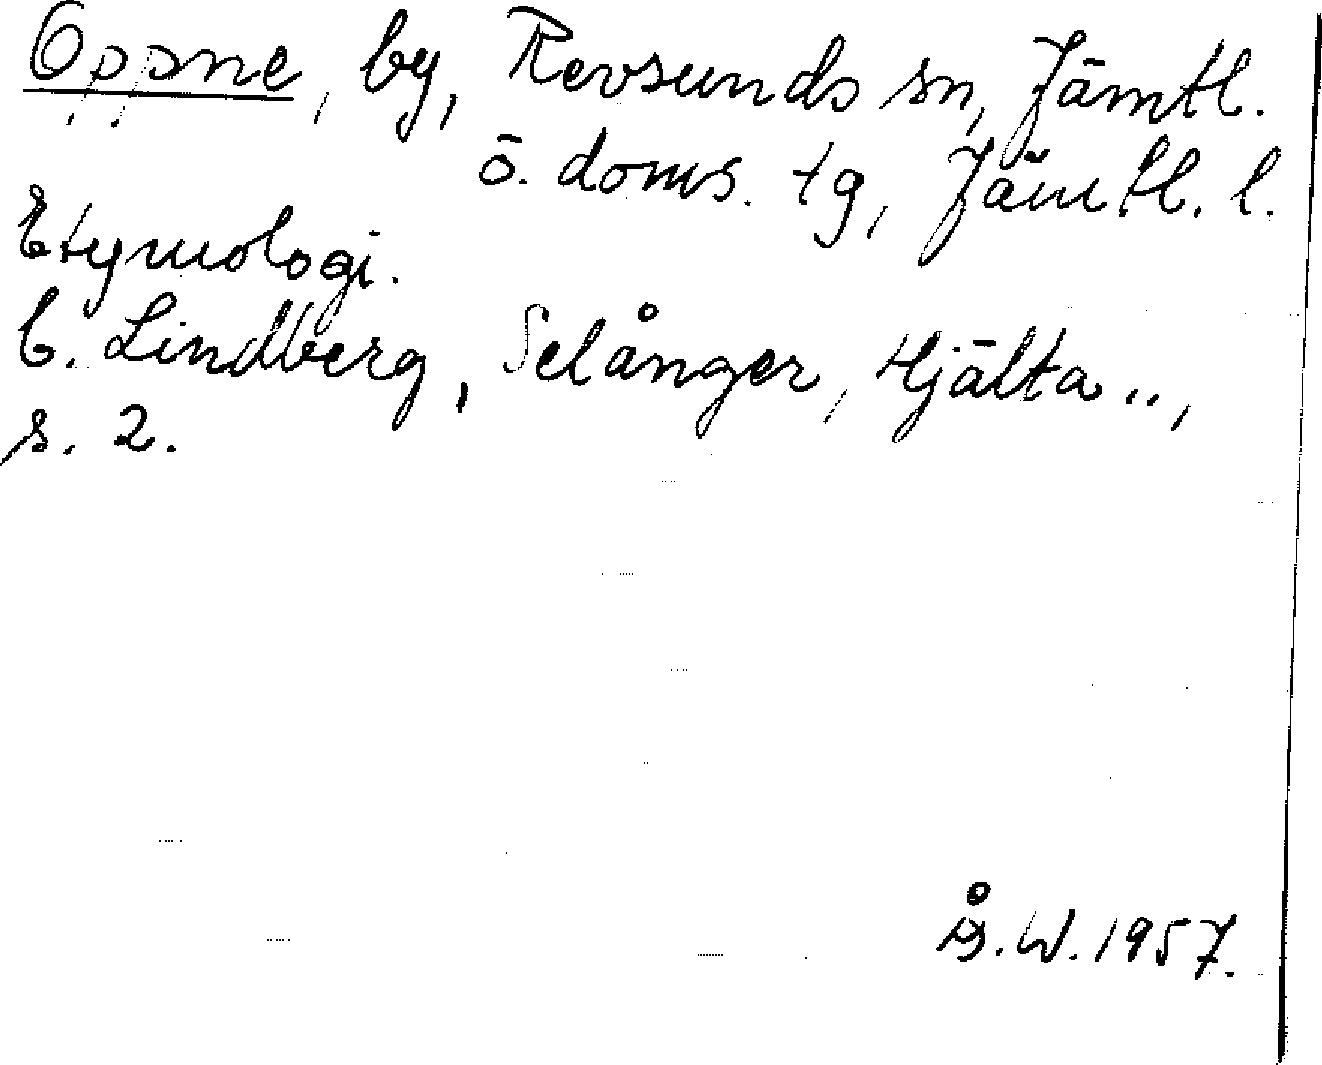 Oppne, by, Revsunds sn, Jämtl.
ö. doms. tg, Jämtl. l.
Etymologi.
C. Lindberg, Selånger, Hjälta..,
s. 2.
Å.W. 1957.